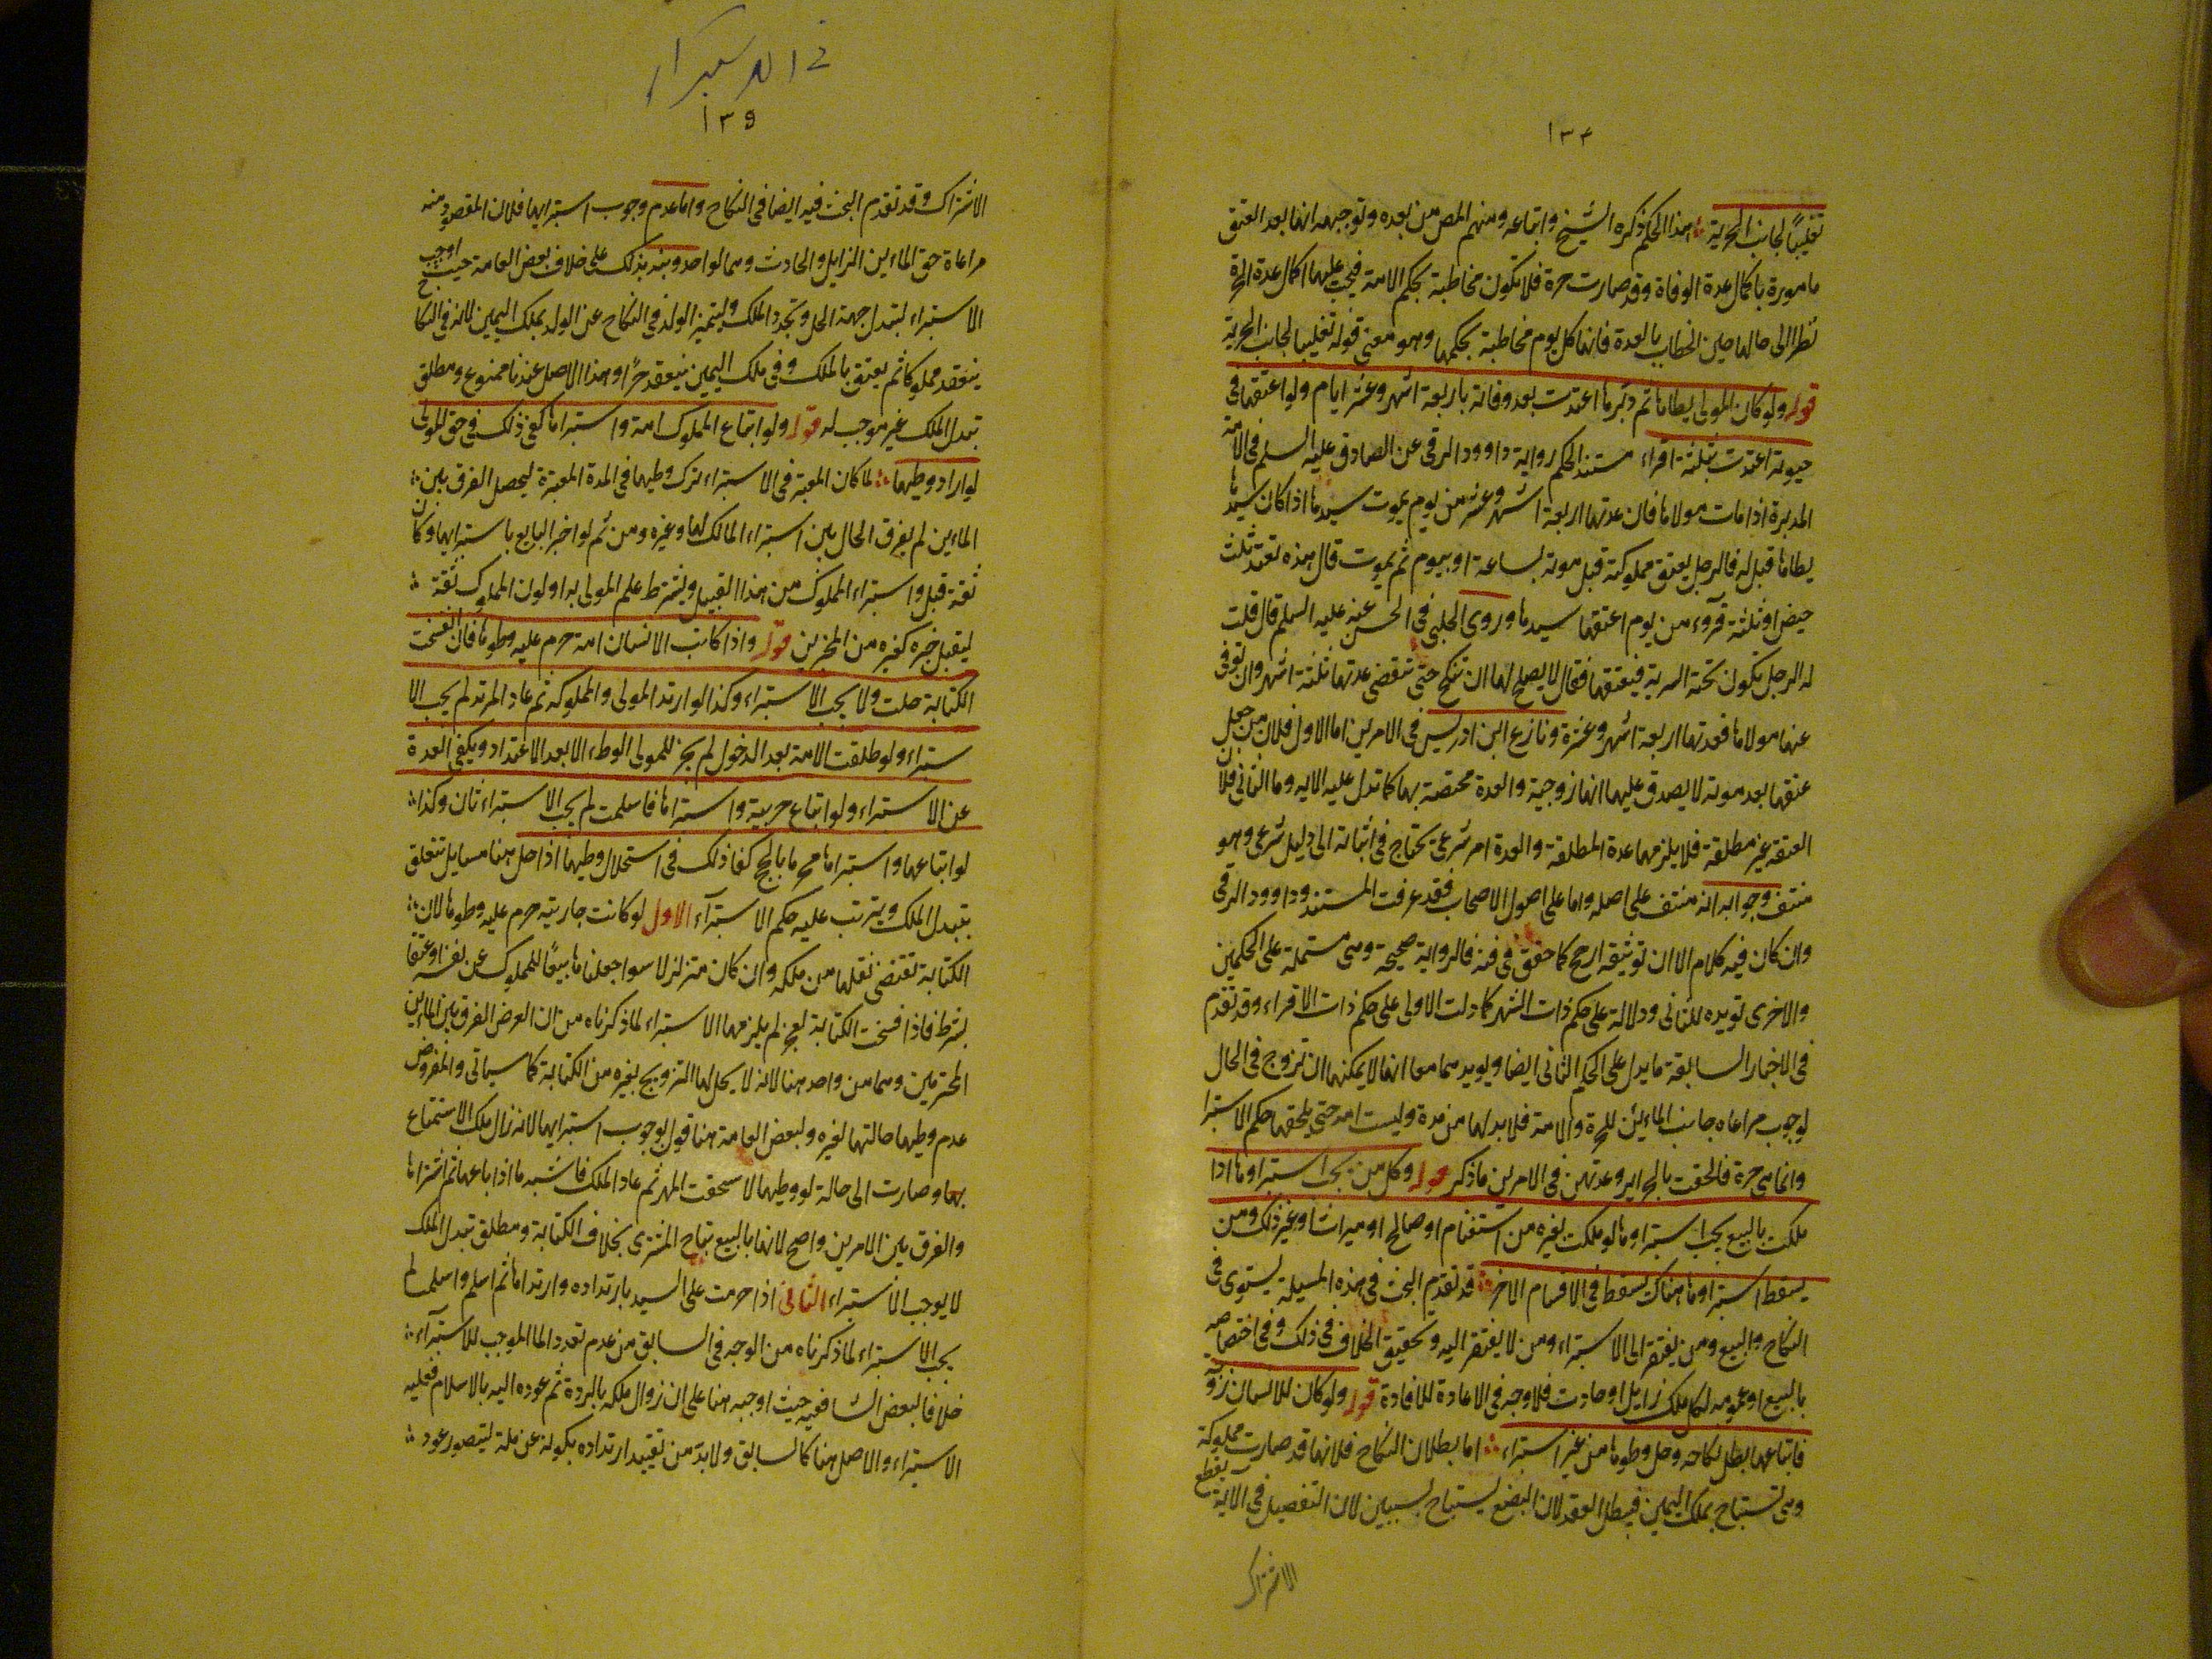 ١٣٤
تغليبًا لجانب الحرية ؞ هذا الحكم ذكره الشيخ واتباعه ومنهم المص من بعده وتوجيهه انها بعد العتق
مامورة باكمال عدة الوفاة وقد صارت حرة فلا تكون مخاطبة بحكم الامة فيجب عليها اكمال عدة الحرة
نظرا الى حالها حين الخطاب بالعدة فانها كل يوم مخاطبة بحكمها وهو معنى قوله تغليبا لجانب الحرية
قوله ولو كان المولى يطاها ثم دبرها اعتدت بعد وفاته باربعة اشهر وعشرة ايام ولو اعتقها في
حيوته اعتدت بثلثة اقراء مستند الحكم رواية داوود الرقى عن الصادق عليه السلم في الامة
المدبرة اذا مات مولاها فان عدتها اربعة اشهر وعشر من يوم يموت سيدها اذا كان سيدها
يطاها قيل له فالرجل يعتق مملوكته قبل موته بساعة او بيوم ثم يموت قال هذه تعتد بثلث
حيض او ثلثة قروء من يوم اعتقها سيدها وروى الحلبي في الحسن عنه عليه السلم قال قلت
له الرجل تكون تحته السرية فيعتقها فقال لا يصلح لها ان تنكح حتى تنقضى عدتها ثلثة اشهر وان توفى
عنها مولاها فعدتها اربعة اشهر وعشرة ونازع ابن ادريس في الامرين اما الاول فلان من جعل
عتقها بعد موته لا يصدق عليها انها زوجية والعدة مختصة بها كما تدل عليه الايه وما الثاني فلان
المعتقة غير مطلقة فلا يلزمها عدة المطلقة والعدة امر شرعى يحتاج في اثباته الى دليل شرعى وهو
منتف وجوابه انه منتف على اصله واما على اصول الاصحاب فقد عرفت المستند وداوود الرقى
وان كان فيه كلام الا ان توثيقه ارجح كما حقق في فنه فالرواية صحيحة وهى مشتملة على الحكمين
والاخرى مويده للثانى ودلالة على حكم ذات الشهر كما دلت الاولى على حكم ذات الاقراء وقد تقدم
في الاخبار السابقة ما يدل على الحكم الثاني ايضا ويويد هما معا انها لا يمكنها ان تزوج في الحال
لوجوب مراعاه جانب المائين للحرة والامة فلا بد لها من مدة وليست امة حتى يلحقها حكم الاستبرا
وانما هى حرة فالحقت بالحراير وعدتهن في الامرين ما ذكر قوله وكل من يجب استبراوها اذا
ملكت بالبيع يجب استبراوها لو ملكت بغيره من استغنام او صلح او ميراث او غير ذلك ومن
يسقط استبراوها هناك يسقط في الاقسام الاخر ؞ قد تقدم البحث في هذه المسيلة يستوى في
النكاح والبيع ومن يفتقر الى الاستبراء ومن لا يفتقر اليه وتحقيق الخلاف في ذلك وفي اختصاصه
بالبيع او عمومه لكل ملك زايل او حادث فلا وجه في الاعادة للافادة قوله ولو كان للانسان زوجة
فابتاعها بطل نكاحه وحل وطوها من غير استبراء ؞ اما بطلان النكاح فلانها قد صارت مملوكة
وهى تستباح بملك اليمين فيبطل العقد لان البضع لا يستباح بسببين لان التفصيل في الاية يقطع
الاشتراك
في الاستبراء
١٣٥
الاشتراك وقد تقدم البحث فيه ايضا في النكاح واما عدم وجوب استبرايها فلان المقصود منه
مراعاة حق المائين الزايل والحادث وهما لواحد ونبه بذلك على خلاف بعض العامة حيث اوجب
الاستبراء لتبدل جهة الحل وتجدد الملك وليتميز الولد في النكاح عن الولد بملك اليمين لانه في النكاح
ينعقد مملوكا ثم يعتق بالملك وفي ملك اليمين ينعقد حرًا وهذا الاصل عندنا ممنوع ومطلق
تبدل الملك غير موجب له قوله ولو ابتاع المملوك امة واستبراها كفى ذلك في حق المولى
لو اراد وطيها ؞ لما كان المعتبر في الاستبراء ترك وطيها في المدة المعتبرة ليحصل الفرق بين ؞
الماءين لم يفرق الحال بين استبراء المالك لها وغيره ومن ثم لو اخبر البايع باستبرايها وكان
ثقة قبل واستبراء المملوك من هذا القبيل ويشترط علم المولى به او لون المملوك ثقة ؞
ليقبل خبره كغيره من المخبرين قوله واذا كاتب الانسان امة حرم عليه وطوها فان انفسخت
الكتابة حلت ولا يجب الاستبراء وكذا لو ارتد المولى والمملوكه ثم عاد المرتد لم يجب الا
ستبراء ولو طلقت الامة بعد الدخول لم يجز للمولى الوطء الا بعد الاعتداد ويكفى العدة
عن الاستبراء ولو ابتاع حربية واستبراها فاسلمت لم يجب الاستبراء ثان وكذا ؞
لو ابتاعها واستبراها محرما بالحج كفا ذلك في استحلال وطيها اذا حل هنا مسايل تتعلق
بتبدل الملك ويترتب عليه حكم الاستبرآء الاول لو كاتب جاريته حرم عليه وطوها لان ؞
الكتابة تقتضى نقلها من ملكه وان كان متزلزلا سوا جعلناها بيعًا للمملوك عن نفسه او عتقا
بشرط فاذا فسخت الكتابة لعجز لم يلزمها الاستبراء لما ذكرناه من ان الغرض الفرق بين المائين
المحترمين وهما من واحد هنا لانه لا يحل لها التزويج بغيره من الكتابة كما سياتى والمفروض
عدم وطيها حالتها لغيره ولبعض العامة هنا قول بوجوب استبرايها لانه زال ملك الاستمتاع
بها وصارت الى حالة لو وطيها لاستحقت المهر ثم عاد الملك فاشبه ما اذا باعها ثم اشتراها
والفرق بين الامرين واضح لانها بالبيع تباح للمشترى بخلاف الكتابة ومطلق تبدل الملك
لا يوجب الاستبراء الثانى اذا حرمت على السيد بارتداده وارتدادها ثم اسلم واسلمت لم
يجب الاستبراء لما ذكرناه من الوجه في السابق من عدم تعدد الما الموجب للاستبرآء ؞
خلافا لبعض الشافعيه حيث اوجبه هنا على ان زوال ملكه بالردة ثم عوده اليه بالاسلام فعليه
الاستبراء والاصل هنا كالسابق ولابد من تقييد ارتداده بكونه عن ملة ليتصور عود ؞